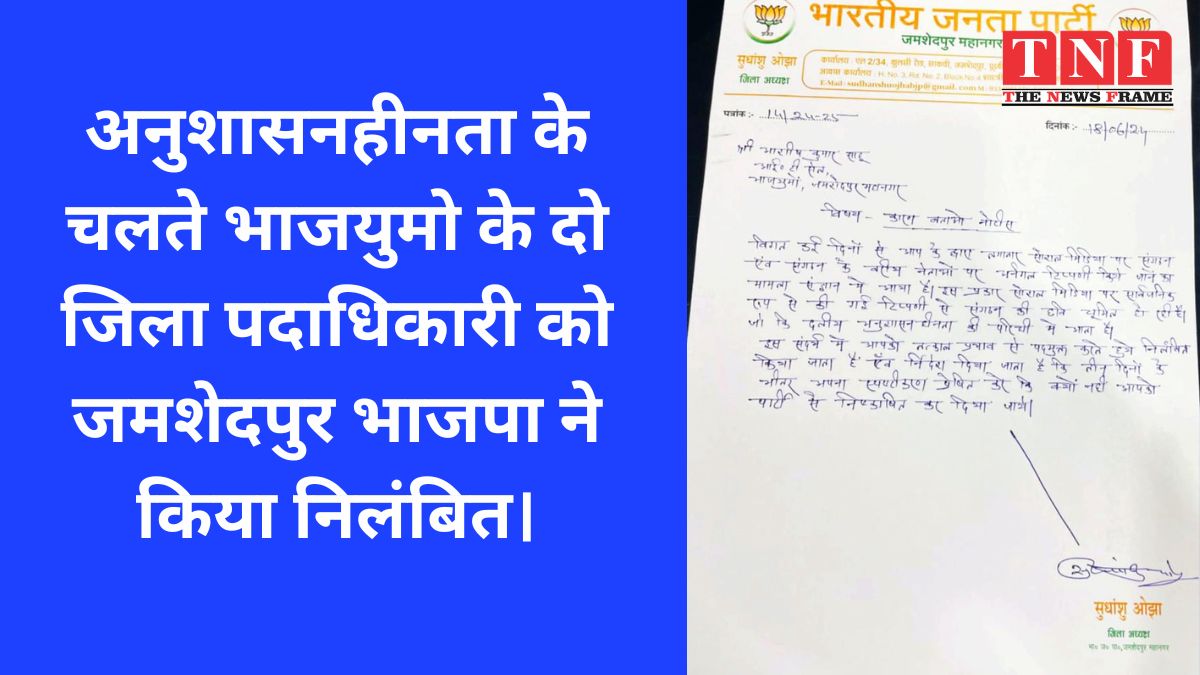 अनुशासनहीनता के
चलते भाजयुमो के दो
जिला पदाधिकारी को
जमशेदपुर भाजपा ने
किया निलंबित।
भारतीय जनता पार्टी
जमशेदपुर महानगर
TNF
THE NEWS FRAME
सुधांशु ओझा
जिला अध्यक्ष
कार्यालय : एल 2/34, साकची, जमशेदपुर,
आवास कार्यालय : H. No. 3, Rd. No. 2, Block No. 4
E-Mail: sudhanshuojhabjp@gmail.com
पत्रांक :- 14/24-25
दिनांक :- 18/06/24
श्री कुमार साहू
आई० टी सेल,
भाजयुमो, जमशेदपुर महानगर
विषय - कारण बताओ नोटीस
विगत कई दिनों से आप के द्वारा लगातार सोशल मिडिया पर संगठन
एंव संगठन के वरीय नेताओं पर अनर्गल टिप्पणी किये जाने का
मामला संज्ञान में आया है। इस प्रकार सोशल मिडिया पर सार्वजनिक
रूप से की गई टिप्पणी से संगठन की छवि धूमिल हो रही है।
जो कि दलीय अनुशासन हीनता की श्रेणी में आता है।
इस संदर्भ में आपको तत्काल प्रभाव से पदमुक्त करते हुये निलंबित
किया जाता है एंव निर्देश दिया जाता है कि तीन दिनों के
भीतर अपना स्पष्टीकरण प्रेषित करे कि क्यों नही आपको
पार्टी से निष्कासित कर दिया जाये।
सुधांशु ओझा
जिला अध्यक्ष
भा० ज० पा०, जमशेदपुर महानगर